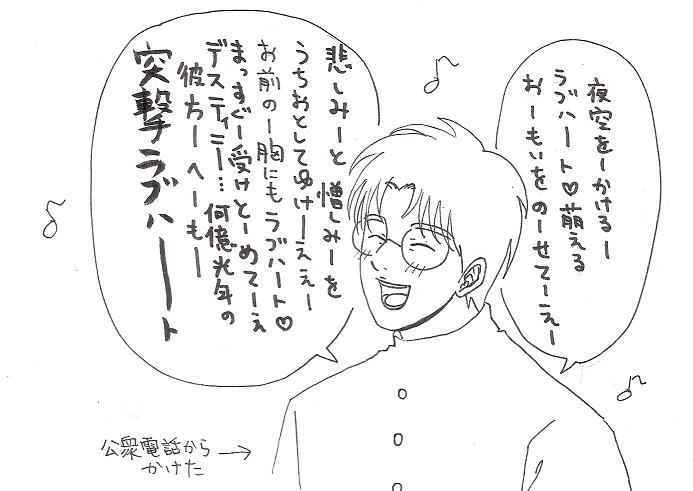 夜空をーかけるー
ラブハート♡萌える
おーもいをのーせてーえー
悲しみーと憎しみーを
うちおとしてゆけーええー
お前のー胸にもラブハート♡
まっすぐー受けとーめてーえ
デスティニー…何億光年の
彼方ーへーもー
突撃ラブハート
公衆電話から
かけた